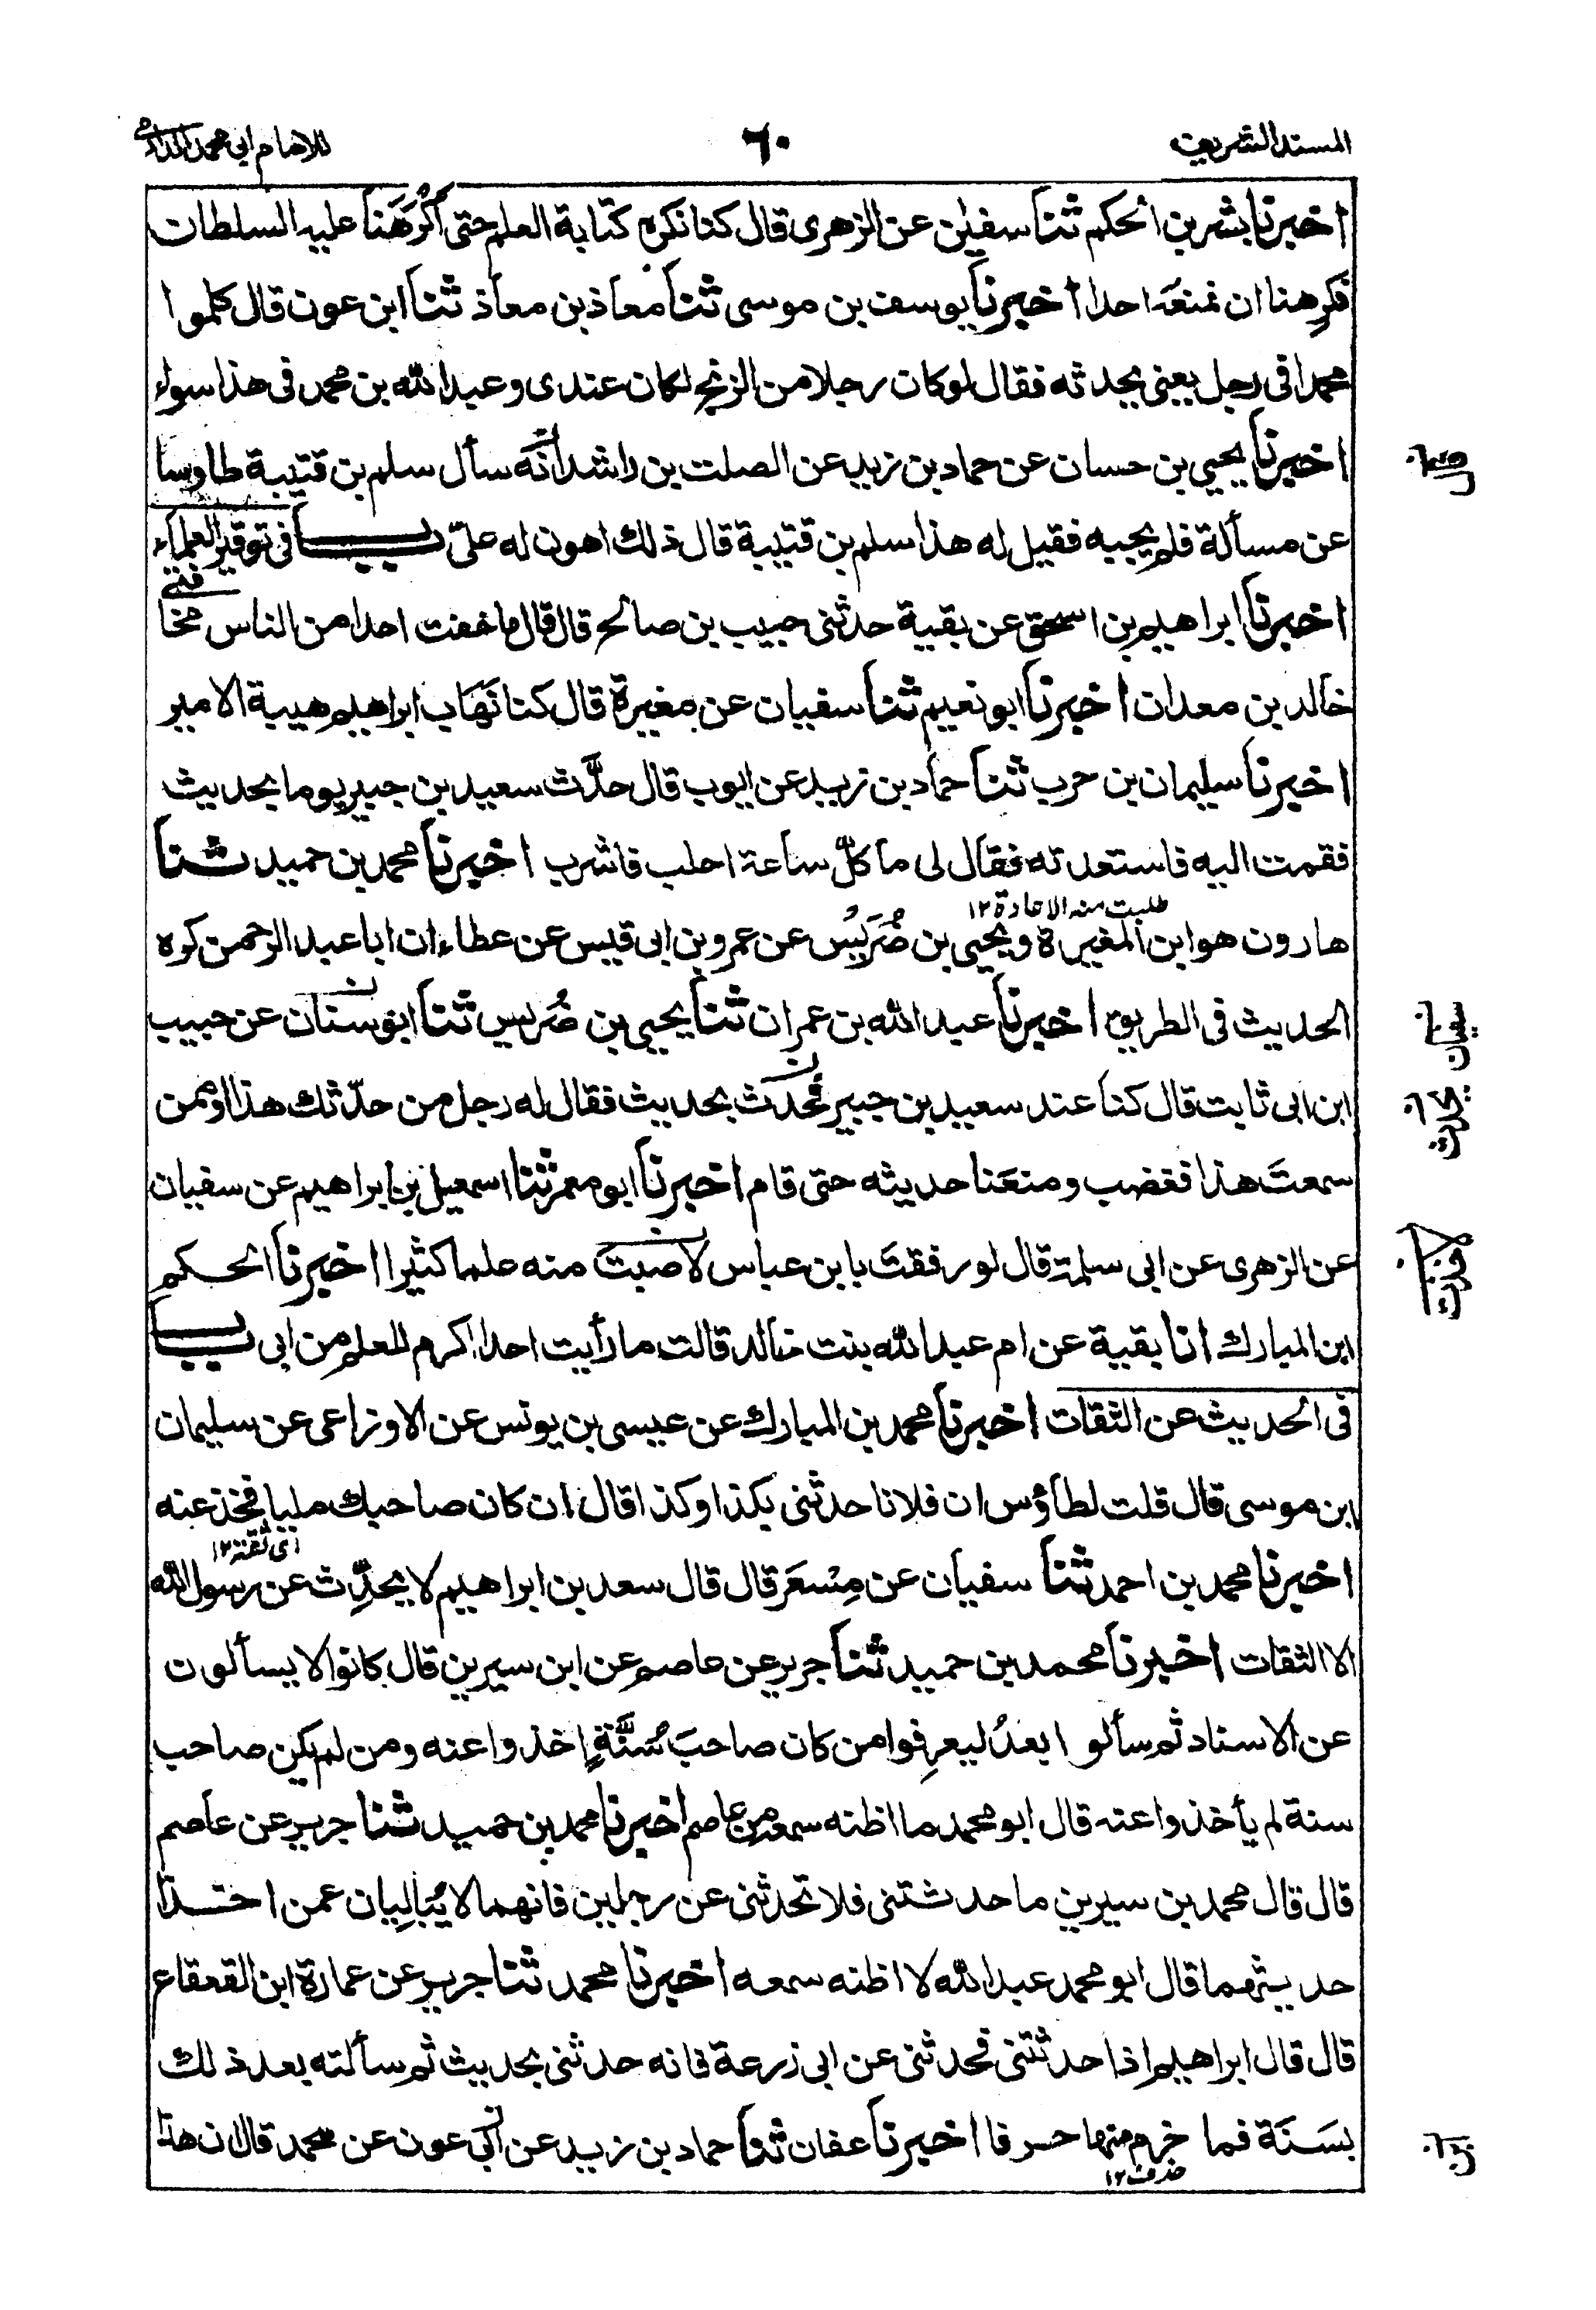 المسند الشريف
٦٠
للامام ابي محمد الدارمي
اخبرنا بشر بن الحكم ثنا سفيٰن عن الزهرى قال كنا نكره كتابة العلم حتى اكرَهَنا عليه السلطان
فكرِهنا ان نمنعَه احدا اخبرنا يوسف بن موسى ثنا معاذ بن معاذ ثنا ابن عون قال كلموا
محمدا فى رجل يعنى يحدثه فقال لو كان رجلا من الزنج لكان عندى وعبد الله بن محمد فى هذا سواء
اخبرنا يحيى بن حسان عن حماد بن زيد عن الصلت بن راشد انه سأل سلم بن قتيبة طاوسا
عن مسألة فلم يجبه فقيل له هذا سلم بن قتيبة قال ذلك اهون له علىّ باب فى توقير العلماء
اخبرنا ابراهيم بن اسحق عن بقية حدثنى حبيب بن صالح قال قال ما خفت احدا من الناس مخا
فتى
خالد بن معدان اخبرنا ابو نعيم ثنا سفيان عن مغيرة قال كنا نَهَاب ابراهيم هيبة الامير
اخبرنا سليمان بن حرب ثنا حماد بن زيد عن ايوب قال حدَّث سعيد بن جبير يوما بحديث
فقمت اليه فاستعدته فقال لى ما كلّ ساعة احلب فاشرب اخبرنا محمد بن حميد ثنا
طلبت منه الاعادة ١٢
هارون هو ابن المغيرة ويحيى بن ضُرَيْس عن عمرو بن ابى قيس عن عطاء ان ابا عبد الرحمن كره
الحديث فى الطريق اخبرنا عبد الله بن عمران ثنا يحيى بن ضُريس ثنا ابو سنان عن حبيب
ابن ابى ثابت قال كنا عند سعيد بن جبير فحدث بحديث فقال له رجل من حدّثك هذا او ممن
سمعتَ هذا فغضب ومنعَنا حديثه حتى قام اخبرنا ابو معمر ثنا اسمعيل بن ابراهيم عن سفيان
عن الزهرى عن ابى سلمة قال لو رفقتَ بابن عباس لاصبت منه علما كثيرا اخبرنا الحكم
ابن المبارك انا بقية عن ام عبد الله بنت خالد قالت ما رأيت احدا اكرم للعلم من ابى باب
فى الحديث عن الثقات اخبرنا محمد بن المبارك عن عيسى بن يونس عن الاوزاعى عن سليمان
ابن موسى قال قلت لطاؤس ان فلانا حدثنى بكذا وكذا قال ان كان صاحبك مليا فخذ عنه
اى ثقة ١٢
اخبرنا محمد بن احمد ثنا سفيان عن مِسْعَر قال قال سعد بن ابراهيم لا يحدِّث عن رسول الله
الا الثقات اخبرنا محمد بن حميد ثنا جرير عن عاصم عن ابن سيرين قال كانوا لا يسألون
عن الاسناد ثم سألوا بعدُ ليعرِفوا من كان صاحبَ سُنَّةٍ اخذوا عنه ومن لم يكن صاحب
سنة لم يأخذوا عنه قال ابو محمد ما اظنه سمعه من عاصم اخبرنا محمد بن حميد ثنا جرير عن عاصم
قال قال محمد بن سيرين ما حدثتنى فلا تحدثنى عن رجلين فانهما لا يُبالِيان عمن اخذا
حديثهما قال ابو محمد عبد الله لا اظنه سمعه اخبرنا محمد ثنا جرير عن عمارة ابن القعقاع
قال قال ابراهيم اذا حدثتنى فحدثنى عن ابى زرعة فانه حدثنى بحديث ثم سألته بعد ذلك
بسَنَة فما خرم منها حرفا اخبرنا عفان ثنا حماد بن زيد عن ابى عون عن محمد قال ان هذا
حذف ١٢
سفيان
يحدث